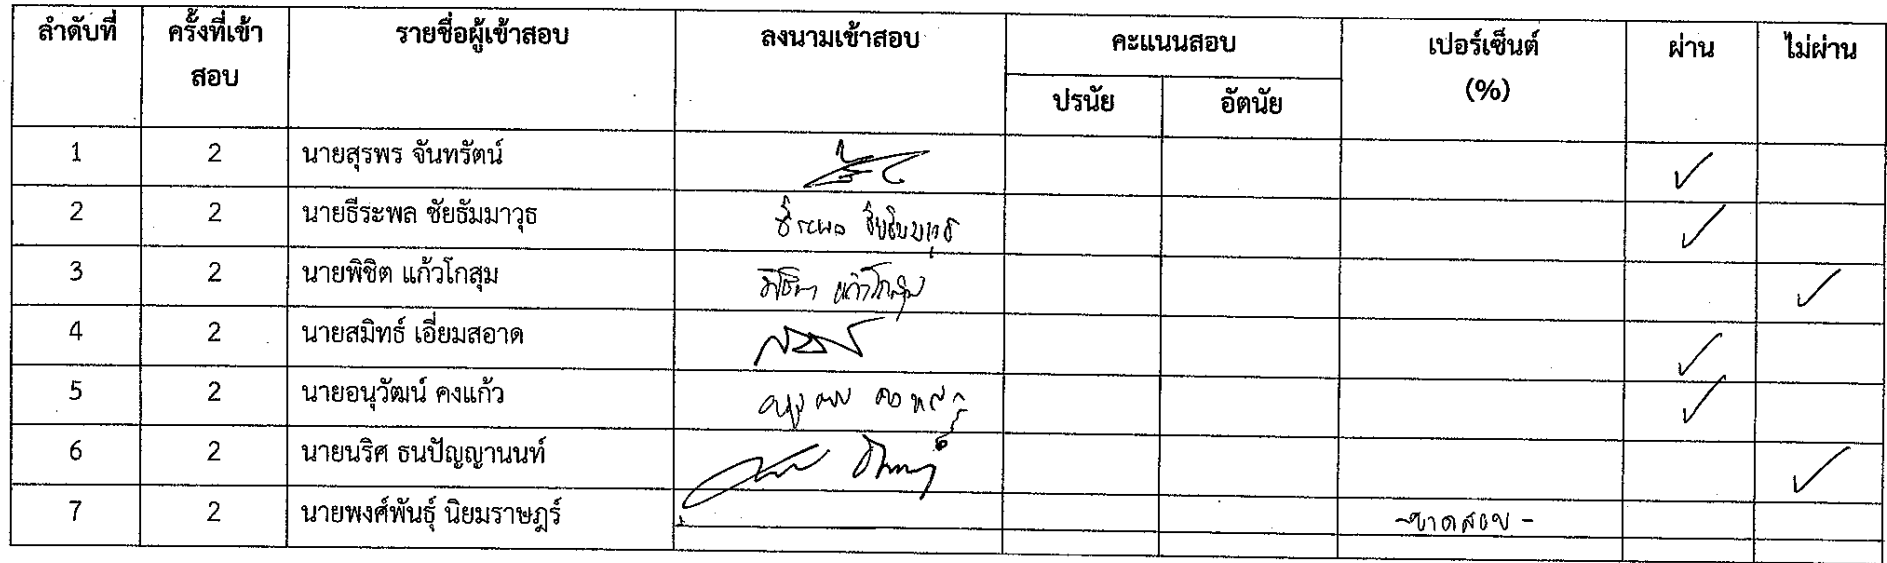 ลำดับที่ ครั้งที่เข้าสอบ รายชื่อผู้เข้าสอบ ลงนามเข้าสอบ คะแนนสอบ เปอร์เซ็นต์ (%) ผ่าน ไม่ผ่าน
ปรนัย อัตนัย
1 2 นายสุรพร จันทรัตน์ ✓
2 2 นายธีระพล ชัยธัมมาวุธ ธีระพล ชัยธัมมาวุธ ✓
3 2 นายพิชิต แก้วโกสุม พิชิต แก้วโกสุม ✓
4 2 นายสมิทธ์ เอี่ยมสอาด ✓
5 2 นายอนุวัฒน์ คงแก้ว ✓
6 2 นายนริศ ธนปัญญานนท์ ✓
7 2 นายพงศ์พันธุ์ นิยมราษฎร์ -ขาดสอบ-